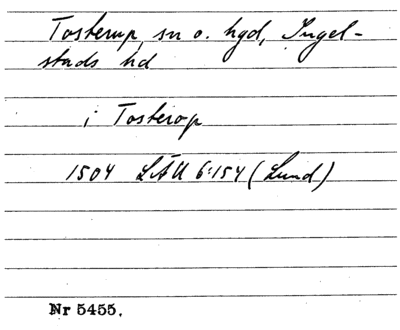 Tosterup sn o. hgd, Ingel-
stads hd
i Tosterop
1504 LÄU 6:154 (Lund)
Nr 5455.